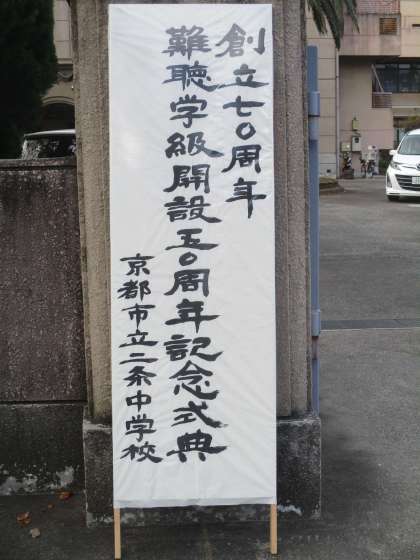 創立七〇周年
難聴学級開設五〇周年記念式典
京都市立二条中学校